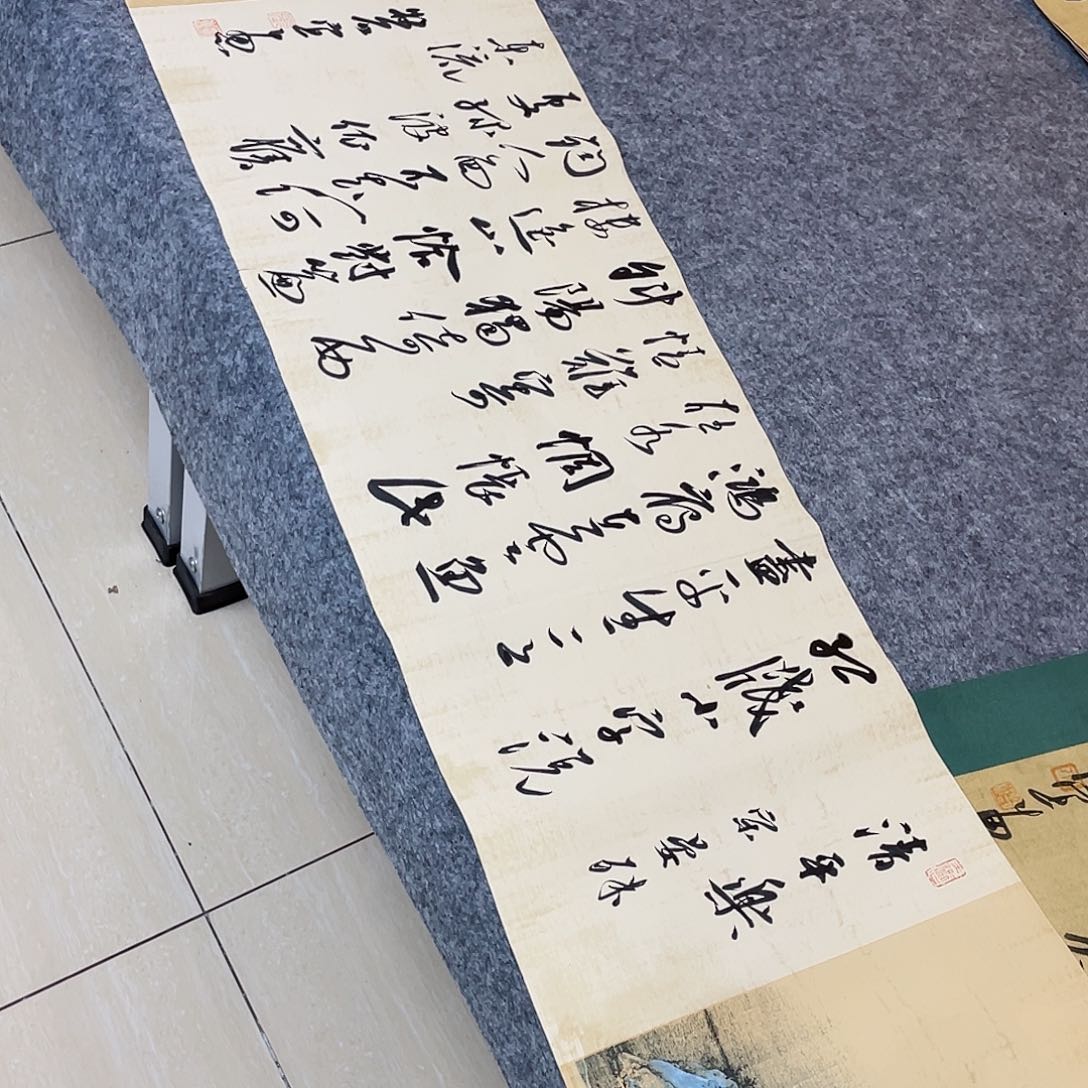 清平樂
宋晏殊
紅箋小字說
盡平生意
鴻雁在雲魚
在水惆悵此
情難寄
斜陽獨倚西
樓遙山恰對簾
鈎人面不知何
處綠波依舊
東流